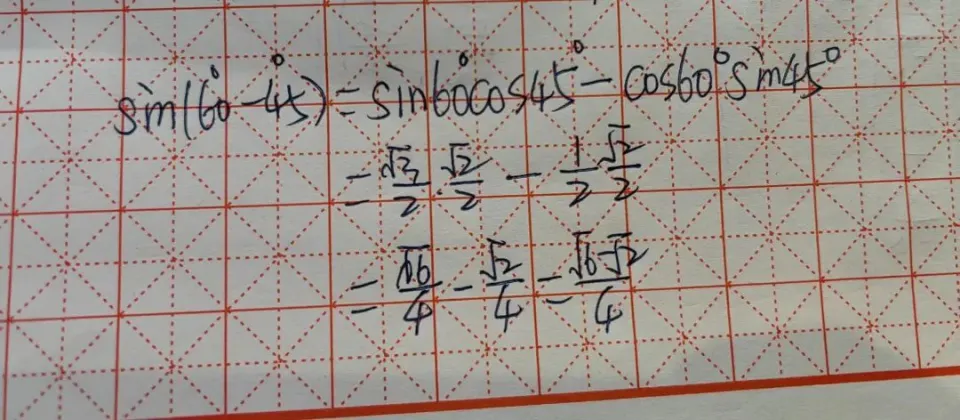 sin(60°-45°)=sin60°cos45°-cos60°sin45°
=√3/2·√2/2-1/2 √2/2
=√6/4-√2/4=(√6-√2)/4